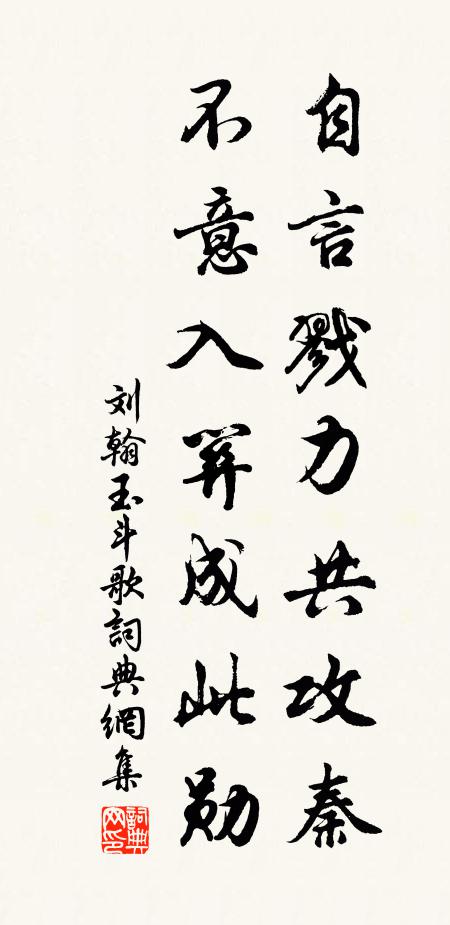 自言戮力共攻秦
不意入關成此勋
刘翰玉斗歌詞典網集
詞典网印